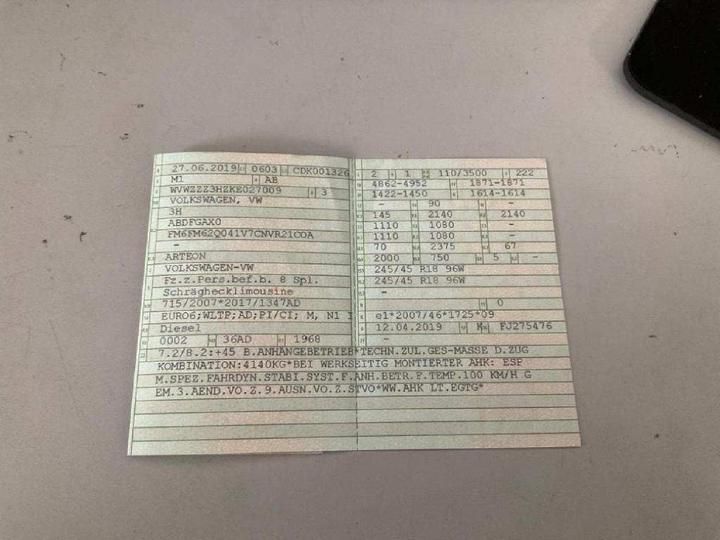 27.06.2019 0603 CDK001326
M1 AB
WVWZZZ3HZKE027009 3
VOLKSWAGEN, VW
3H
ABDFGAX0
FM6FM62Q041V7CNVR21COA
-
ARTEON
VOLKSWAGEN-VW
Fz.z.Pers.bef.b. 8 Spl.
Schräghecklimousine
715/2007*2017/1347AD
EURO6;WLTP;AD;PI/CI; M, N1 I
Diesel
0002 36AD 1968
2 1 110/3500 222
4862-4952 1871-1871
1422-1450 1614-1614
- 90 -
145 2140 2140
1110 1080 -
1110 1080 -
70 2375 67
2000 750 5 -
245/45 R18 96W
245/45 R18 96W
-
0
e1*2007/46*1725*09
12.04.2019 K FJ275476
-
7.2/8.2:+45 B.ANHÄNGEBETRIEB*TECHN.ZUL.GES-MASSE D.ZUG
KOMBINATION:4140KG*BEI WERKSEITIG MONTIERTER AHK: ESP
M.SPEZ.FAHRDYN.STABI.SYST.F.ANH.BETR.F.TEMP.100 KM/H G
EM.3.AEND.VO.Z.9.AUSN.VO.Z.STVO*WW.AHK LT.EGTG*